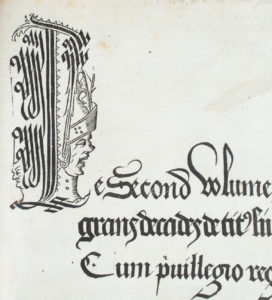 Le Second Volume
grans decades de tit⁹ liu
Cum priuilegio reg